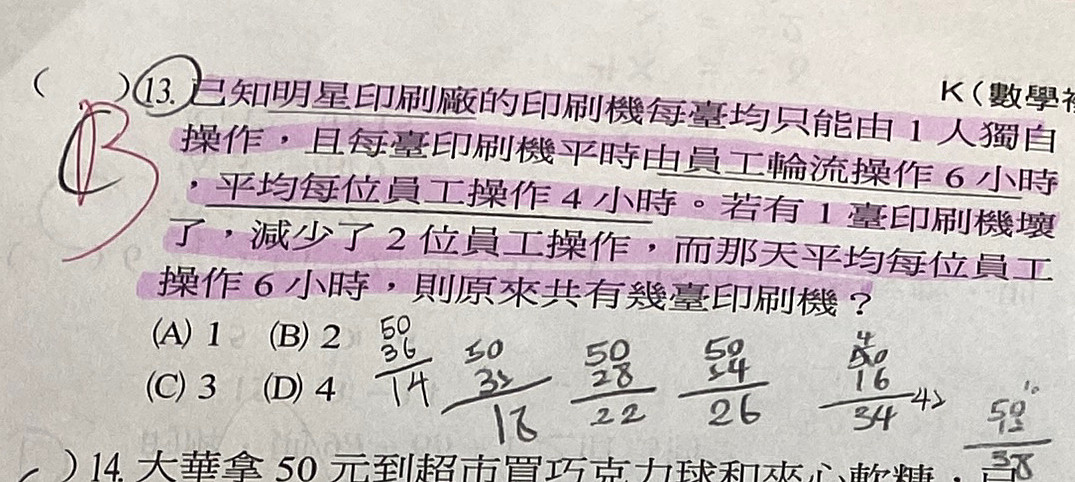 K(數學
( )13. 已知明星印刷廠的印刷機每臺均只能由 1 人獨自
操作,且每臺印刷機平時由員工輪流操作 6 小時
,平均每位員工操作 4 小時。若有 1 臺印刷機壞
了,減少了 2 位員工操作,而那天平均每位員工
操作 6 小時,則原來共有幾臺印刷機?
B
(A) 1 (B) 2
(C) 3 (D) 4
50
36
14
50
18
50
28
22
50
26
16
34
50
38
)14. 大華拿 50 元到超市買巧克力球和夾心軟糖,已